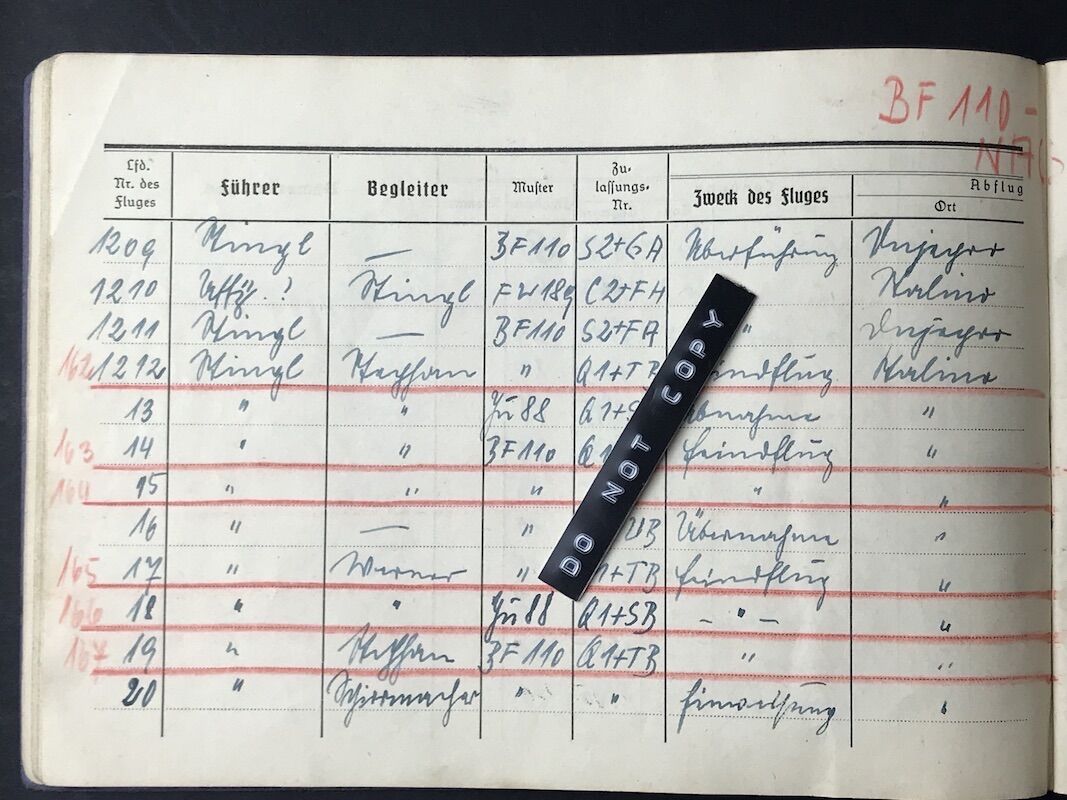 BF 110-
Lfd. Nr. des Fluges Führer Begleiter Muster Zu- lassungs- Nr. Zweck des Fluges Abflug Ort
1209 Stingl — BF 110 S2+GA Überführung Dnjepro
1210 Uffz. ? Stingl FW 189 C2+FH Stalino
1211 Stingl — BF 110 S2+FA " Dnjepro
162 1212 Stingl Stephan " Q1+TB Feindflug Stalino
13 " " Ju 88 Q1+S Abnahme "
163 14 " " BF 110 Q1 Feindflug "
164 15 " " " " "
16 " — " UB Übernahme "
165 17 " Werner " 1+TB Feindflug "
166 18 " " Ju 88 Q1+SB – " – "
167 19 " Stephan BF 110 Q1+TB " "
20 " Schirrmacher " " Einweisung "
DO NOT COPY